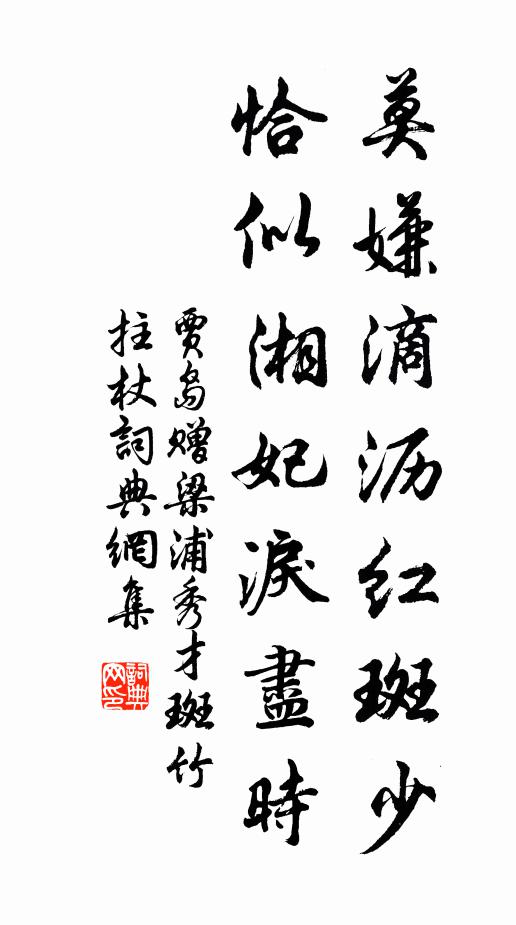 莫嫌滴沥红斑少
恰似湘妃淚盡時
贾岛赠梁浦秀才斑竹
拄杖詞典網集
詞典网印